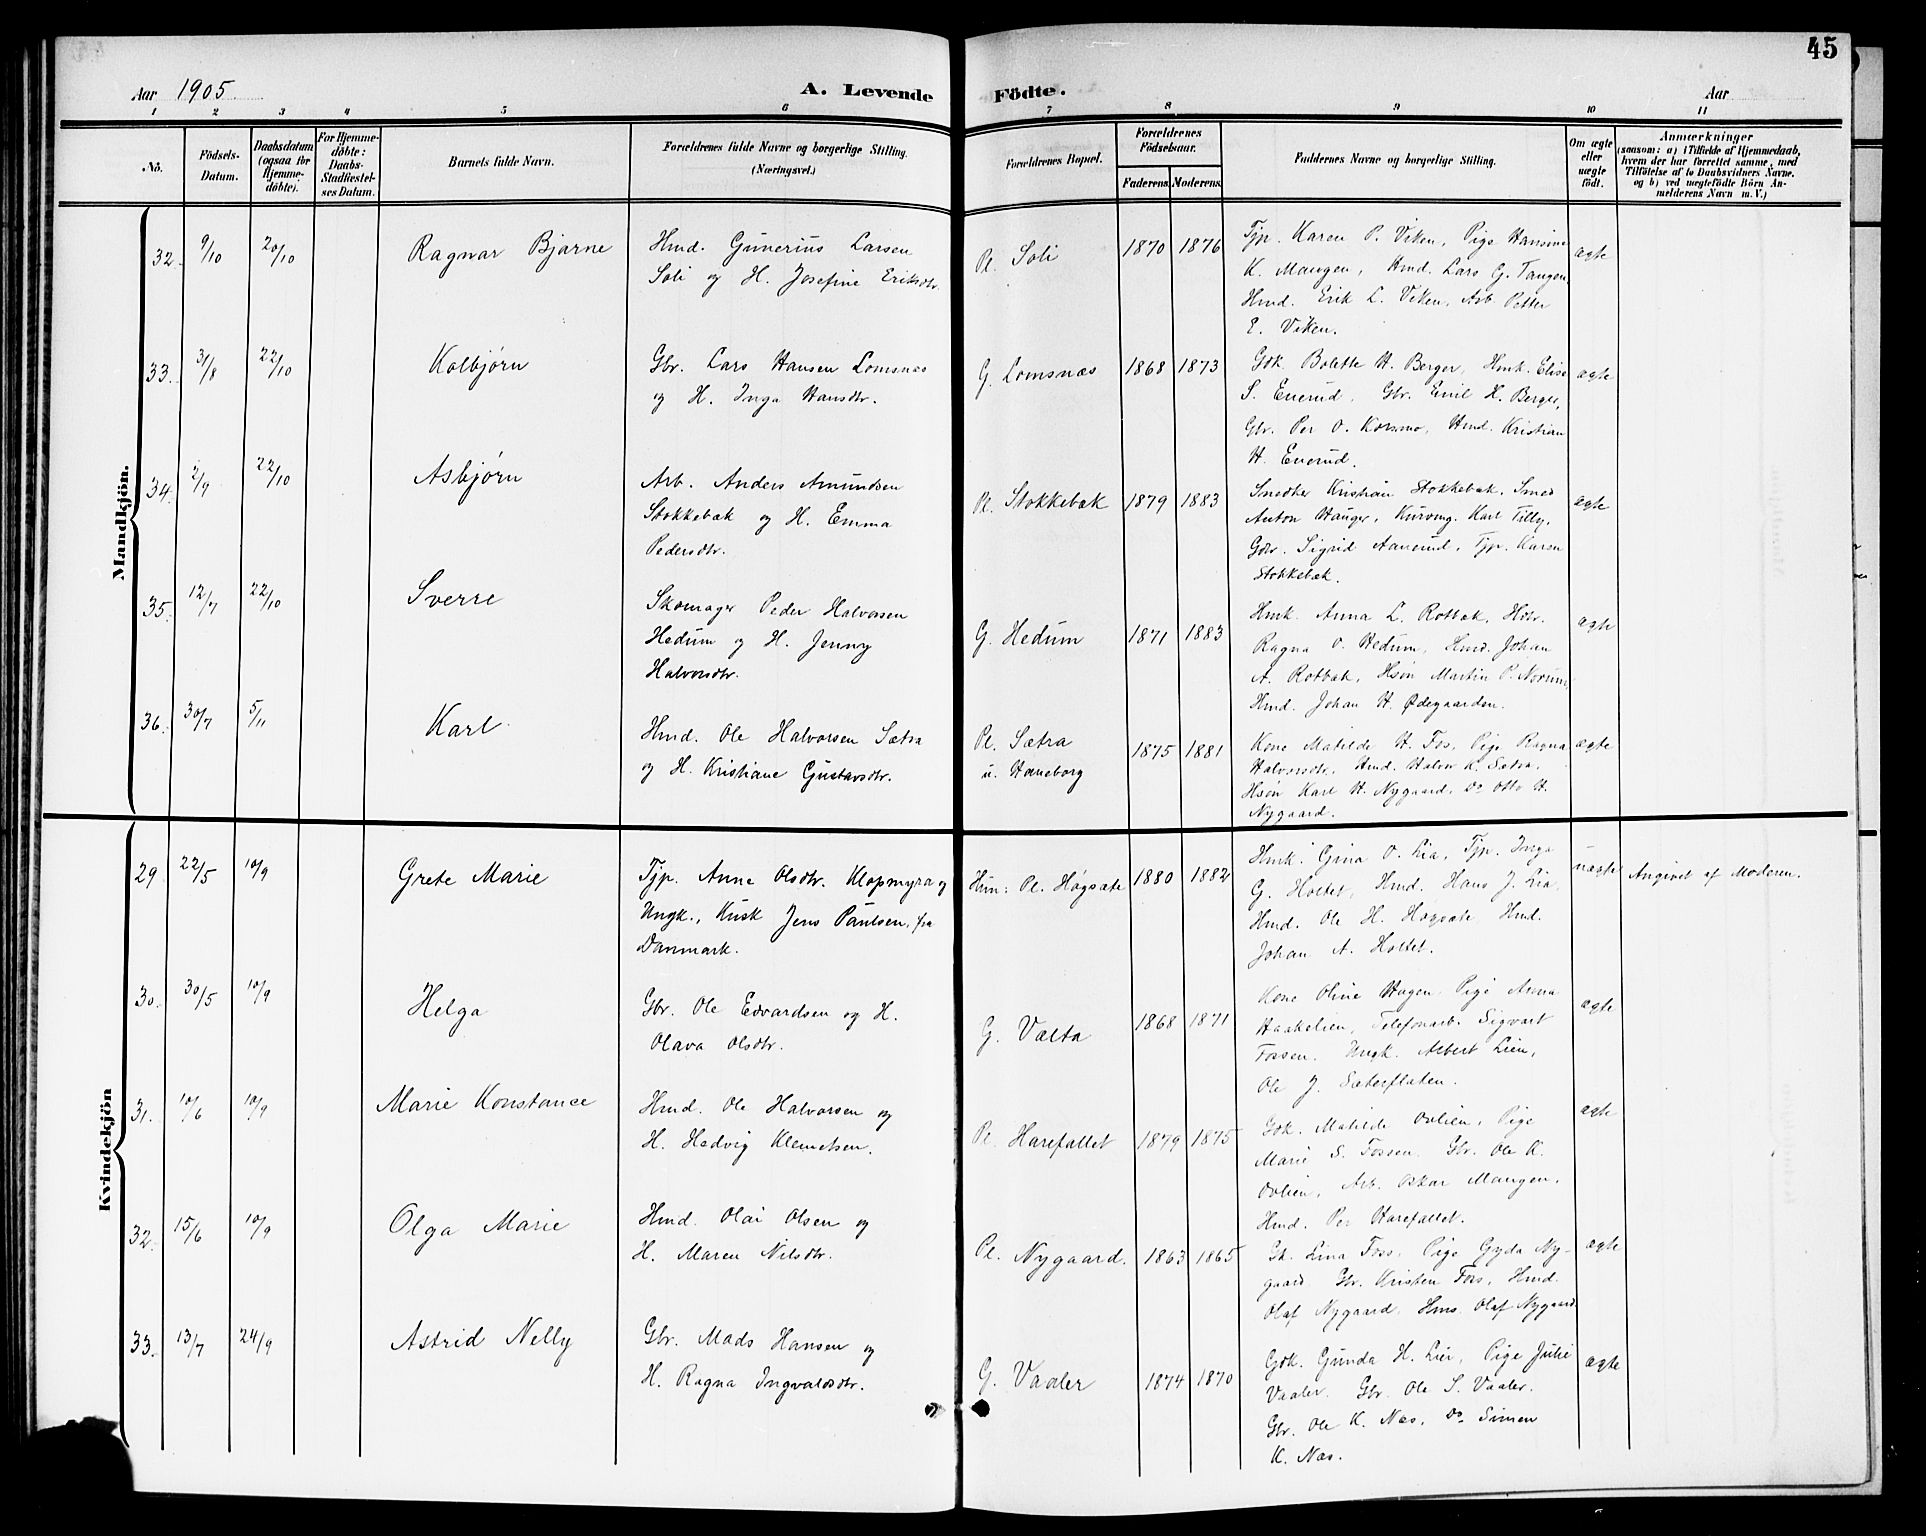 45
Aar 1905
A. Levende Födte.
Aar
1 2 3 4 5 6 7 8 9 10 11
No.
Födsels-Datum.
Daabsdatum (ogsaa for Hjemmedöbte).
For Hjemmedöbte: Daabs-Stadfæstelses Datum.
Barnets fulde Navn.
Forældrenes fulde Navne og borgerlige Stilling. (Næringsvei.)
Forældrenes Bopæl.
Forældrenes Födselsaar.
Faderens. Moderens.
Faddernes Navne og borgerlige Stilling.
Om ægte eller uægte födt.
Anmærkninger
(saasom: a) i Tilfælde af Hjemmedaab, hvem der har forrettet samme, med Tilföielse af to Daabsvidners Navne, og b) ved uægtefödte Börn Anmelderens Navn m. V.)
Mandkjön.
32. 9/10 20/10 Ragnar Bjarne
Hmd. Gunerius Larsen
Soli og H. Josefine Eriksdtr.
Pl. Soli 1870 1876
Tjp. Karen P. Viken, Pige Hansine
K. Mangen, Hmd. Lars G. Tangen,
Hmd. Erik L. Viken, Arb. Petter
E. Viken.
ægte
33. 3/8 22/10 Kolbjørn
Gbr. Lars Hansen Lomsnæs
og H. Inga Hansdtr.
G. Lomsnæs 1868 1873
Gbk. Bolette H. Berger, Hmk. Elise
S. Enerud, Gbr. Emil H. Berger,
Gbr. Per O. Korsmo, Hmd. Kristian
H. Enerud.
ægte
34. 2/9 22/10 Asbjørn
Arb. Anders Amundsen
Stokkebæk og H. Emma
Pedersdtr.
Pl. Stokkebæk 1879 1883
Snedker Kristian Stokkebæk, Smed
Anton Hauger, Kurvmg. Karl Tilly,
Gdtr. Sigrid Aanerud, Tjp. Karen
Stokkebæk.
ægte
35. 12/7 22/10 Sverre
Skomager Peder Halvorsen
Hedum og H. Jenny
Halvorsdtr.
G. Hedum 1871 1883
Hmk. Anna L. Rotbæk, Hdtr.
Ragna O. Hedum, Hmd. Johan
A. Rotbæk, Hsøn Martin P. Norum,
Hmd. Johan H. Ødegaarden.
ægte
36. 30/7 5/11 Karl
Hmd. Ole Halvorsen Sætra
og H. Kristiane Gustavsdtr.
Pl. Sætra
u. Haneborg
1875 1881
Kone Matilde H. Fos, Pige Ragna
Halvorsdtr., Hmd. Halvor K. Sætra,
Hsøn Karl H. Nygaard, Do Otto H.
Nygaard.
ægte
Kvindekjön
29 22/5 10/9 Grete Marie
Tjp. Anne Olsdtr. Klopmyra og
Ungk., Kusk Jens Paulsen, fra
Danmark.
Hun: Pl. Høgsæte 1880 1882
Hmk. Gina O. Lia, Tjp. Inga
G. Holtet, Hmd. Hans J. Lia,
Hmd. Ole H. Høgsæte, Hmd.
Johan A. Holtet.
uægte Angivet af Moderen.
30. 30/5 10/9 Helga
Gbr. Ole Edvardsen og H.
Olava Olsdtr.
G. Valta 1868 1871
Kone Oline Hagen, Pige Anna
Haakelien, Telefonarb. Sigvart
Fossen. Ungk. Albert Lien,
Ole J. Sæterflaten.
ægte
31. 10/6 10/9 Marie Konstance
Hmd. Ole Halvorsen og
H. Hedvig Klemetsen.
Pl. Harefallet 1879 1875
Gbk. Matilde Ovlien, Pige
Marie S. Fossen. Gbr. Ole K.
Ovlien, Arb. Oskar Mangen,
Hmd. Per Harefallet.
ægte
32. 15/6 10/9 Olga Marie
Hmd. Olai Olsen og
H. Maren Nilsdtr.
Pl. Nygaard. 1863 1865
Gk. Lina Foss, Pige Gyda Ny-
gaard Gbr. Kristen Foss, Hmd.
Olaf Nygaard, Hms. Olaf Nygaard.
ægte
33. 13/7 24/9 Astrid Nelly
Gbr. Mads Hansen og
H. Ragna Ingvaldsdtr.
G. Vaaler 1874 1870
Gbk. Gunda H. Lier, Pige Julie
Vaaler. Gbr. Ole S. Vaaler.
Gbr. Ole K. Næs, Do Simen
K. Næs.
ægte